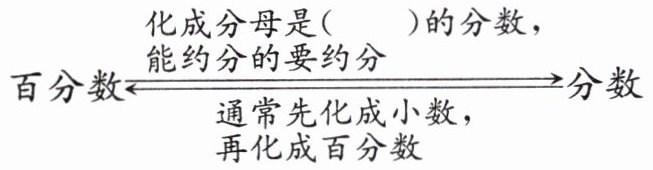 化成分母是(　　)的分数，
能约分的要约分
百分数
分数
通常先化成小数，
再化成百分数